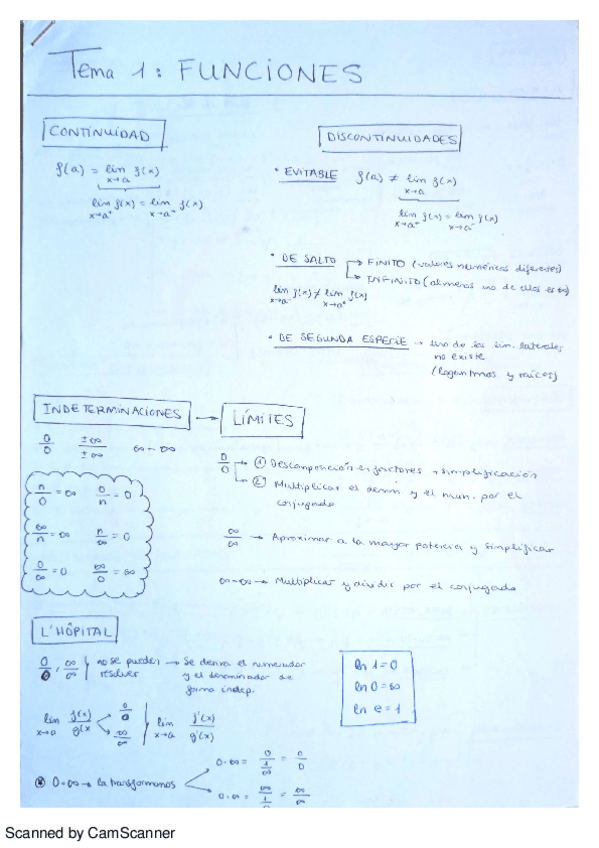 Tema 1: FUNCIONES
CONTINUIDAD
f(a) = lim f(x)
x→a
lim f(x) = lim f(x)
x→a⁺ x→a⁻
DISCONTINUIDADES
• EVITABLE f(a) ≠ lim f(x)
x→a
lim f(x) = lim f(x)
x→a⁺ x→a⁻
• DE SALTO → FINITO (valores numéricos diferentes)
→ INFINITO (al menos uno de ellos es ∞)
lim f(x) ≠ lim f(x)
x→a⁻ x→a⁺
• DE SEGUNDA ESPECIE → Uno de los lim. laterales
no existe
(logaritmos y raíces)
INDETERMINACIONES → LÍMITES
0/0 ±∞/±∞ ∞-∞
n/0 = ∞ 0/n = 0
∞/n = ∞ n/∞ = 0
0/∞ = 0 ∞/0 = ∞
0/0 → ① Descomposición en factores + simplificación
→ ② Multiplicar el denom. y el num. por el
conjugado
∞/∞ → Aproximar a la mayor potencia y simplificar
∞-∞ → Multiplicar y dividir por el conjugado
L'HÔPITAL
0/0, ∞/∞ } no se pueden → Se deriva el numerador
resolver y el denominador de
forma indep.
lim f(x)/g(x < 0/0 ∞/∞ } lim f'(x)/g'(x)
x→a x→a
ln 1=0
ln 0=∞
ln e=1
⊛ 0·∞ → la transformamos
0·∞ = 0/(1/∞) = 0/0
0·∞ = ∞/(1/0) = ∞/∞
Scanned by CamScanner